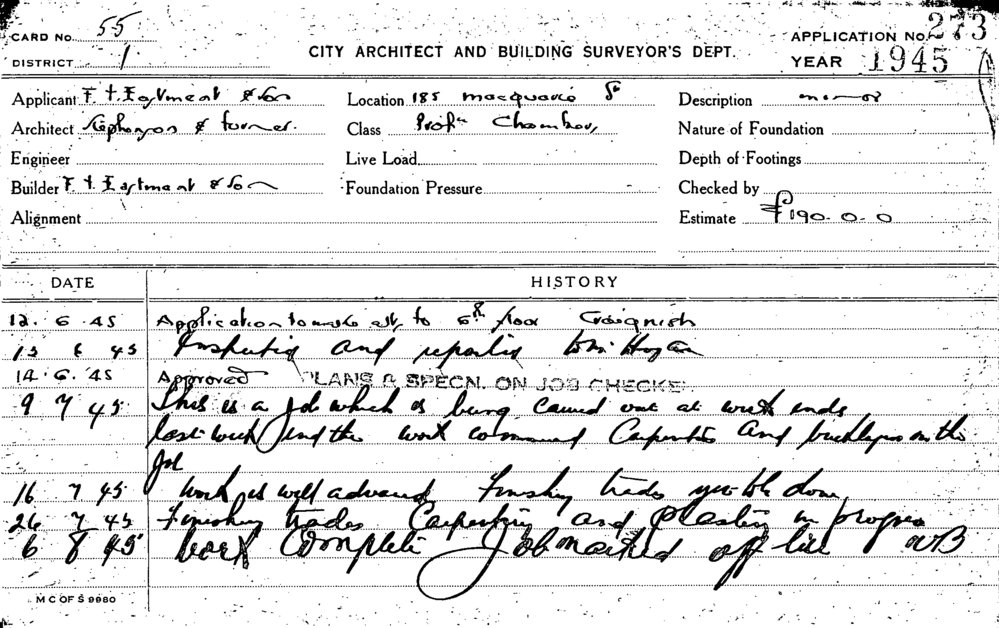 CARD No. 55
DISTRICT 1
CITY ARCHITECT AND BUILDING SURVEYOR'S DEPT.
APPLICATION No. 273
YEAR 1945
Applicant F. T. Eastment & Son
Location 185 macquarie St
Description minor
Architect Stephenson & turner.
Class Profn Chambers,
Nature of Foundation
Engineer
Live Load
Depth of Footings
Builder F. T. Eastment & Son
Foundation Pressure
Checked by
Alignment
Estimate £190. 0. 0
DATE HISTORY
12. 6. 45 Application to make alts, to 6th floor Craignish
13 6 45 Inspecting and reporting to Mr Hogan
14. 6. 45 Approved PLANS & SPECN. ON JOB CHECKE
9 7 45 This is a Job which is being carried out at week ends
last week end the work commenced Carpenters and bricklayers on the
Job
16 7 45 Work is well advanced, Finishing trades yet to be done,
26 7 45 Finishing trades Carpentry and plastering in progress
6 8 45 Work Complete Job marked off
M C OF S 9980